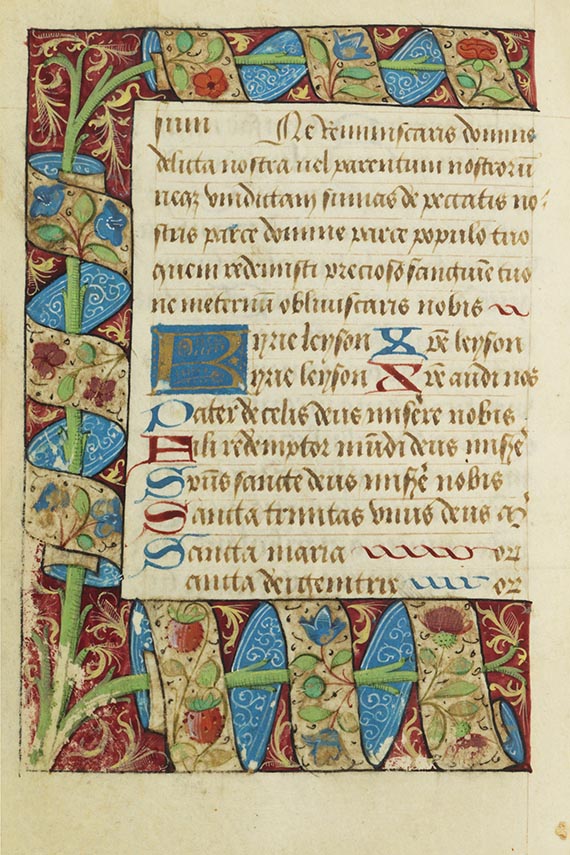 suu Ne Reminiscaris domine
delicta nostra uel parentum nostrorū
neqꝫ vindictam sumas de peccatis no
stris parce domine parce populo tuo
quem redemisti precioso sanguine tuo
ne ineternū obliuiscaris nobis
Kyrie leyson Xp̄e leyson
Kyrie leyson Xp̄e audi nos
Pater de celis deus misere nobis
Fili redemptor mūdi deus misẽ
Sp̄us sancte deus misẽ nobis
Sancta trinitas vnus deus
Sancta maria or
Sancta dei genitrix or